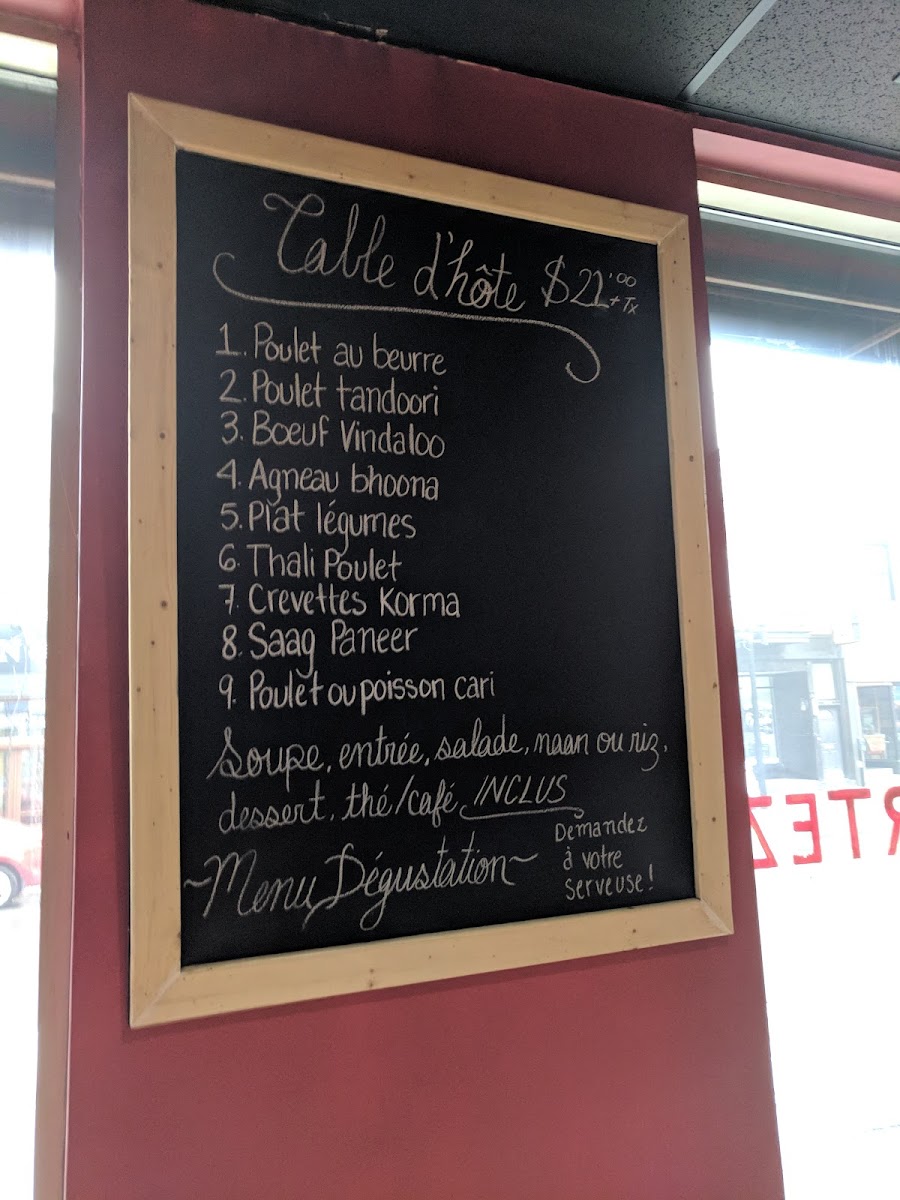 Table d'hôte $22.00 + Tx
1. Poulet au beurre
2. Poulet tandoori
3. Boeuf Vindaloo
4. Agneau bhoona
5. Plat légumes
6. Thali Poulet
7. Crevettes Korma
8. Saag Paneer
9. Poulet ou poisson cari
Soupe, entrée, salade, naan ou riz,
dessert, thé/café, INCLUS
~Menu Dégustation~
Demandez
à votre
serveuse!
RTEZ